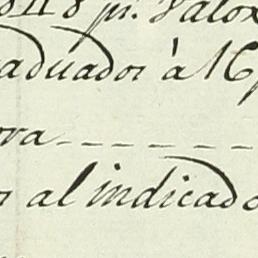 8 pr. Valor
aduados à 16
va
al indicado